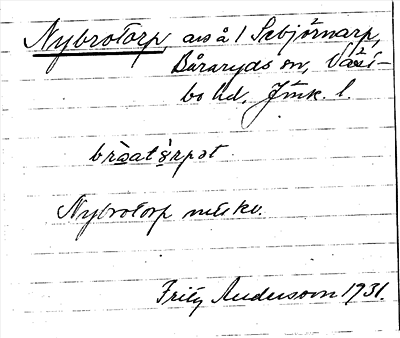 Nybrotorp, avs å 1 Sæbjörnarp,
Båraryds sn, Väst-
bo hd, Jönk. l.
bròsatàrpət
Nybrotorp mtskv.
Fritz Andersson 1931.